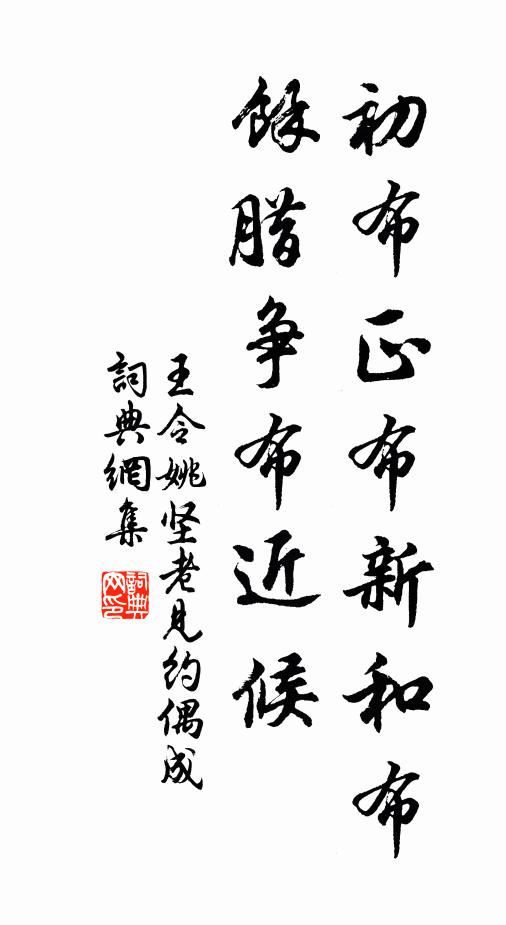 初布正布新和布
餘腊争布近候
王令姚坚老見约偶成
詞典網集
詞典網印